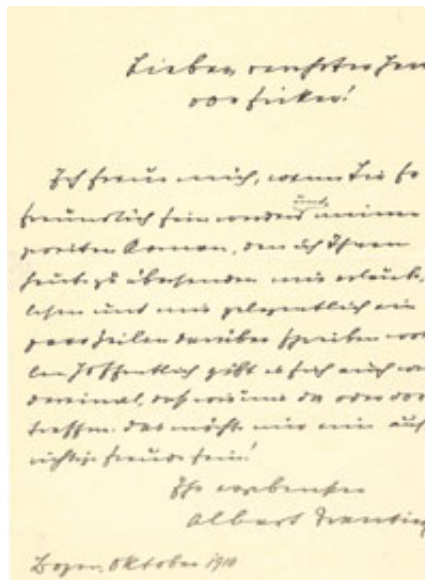 Lieber, verehrter Herr
von Ficker!
Ich freue mich, wenn Sie so
freundlich sein werden auch meinen
zweiten Roman, den ich Ihnen
heute zu übersenden mir erlaube,
lesen und mir gelegentlich ein
paar Zeilen darüber schreiben wol
len. Hoffentlich gibt es sich auch
dereinmal, daß wir uns da oder dort
treffen. Das möchte mir eine auf
richtige Freude sein!
Ihr ergebenster
Albert
Bozen, Oktober 1910